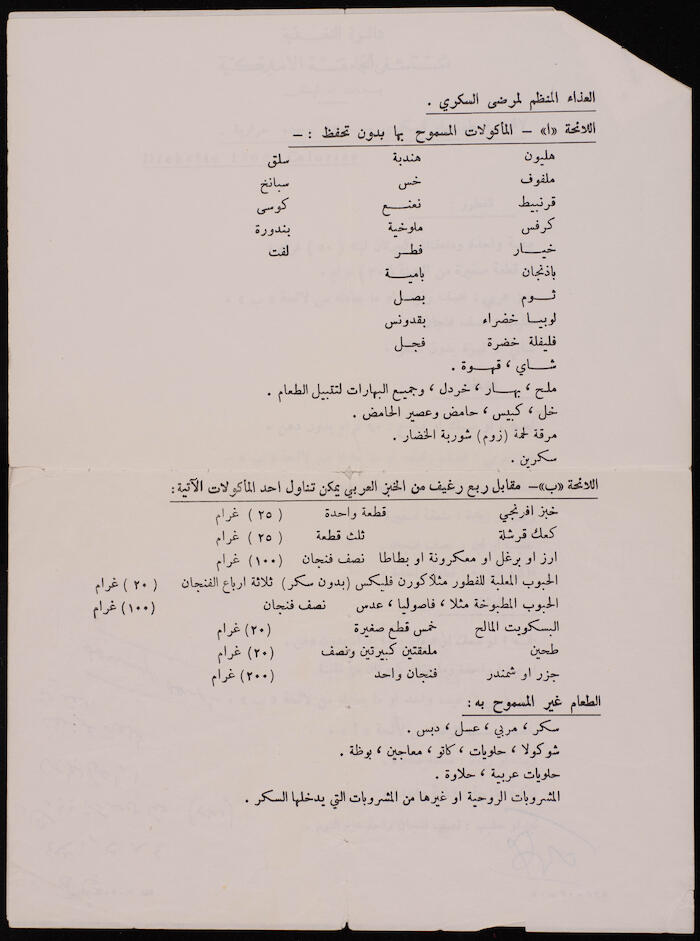 الغذاء المنظم لمرضى السكري .
اللائحة «ا» – المأكولات المسموح بها بدون تحفظ : –
هليون هندبة سلق
ملفوف خس سبانخ
قرنبيط نعنع كوسى
كرفس ملوخية بندورة
خيار فطر لفت
باذنجان بامية
ثوم بصل
لوبيا خضراء بقدونس
فليفلة خضرة فجل
شاي ، قهوة .
ملح ، بهار ، خردل ، وجميع البهارات لتتبيل الطعام .
خل ، كبيس ، حامض وعصير الحامض .
مرقة لحمة (زوم) شوربة الخضار .
سكرين .
اللائحة «ب» – مقابل ربع رغيف من الخبز العربي يمكن تناول احد المأكولات الآتية :
خبز افرنجي قطعة واحدة (٢٥) غرام
كعك قرشلة ثلث قطعة (٢٥) غرام
ارز او برغل او معكرونة او بطاطا نصف فنجان (١٠٠) غرام
الحبوب المعلبة للفطور مثلا كورن فليكس (بدون سكر) ثلاثة ارباع الفنجان (٢٠) غرام
الحبوب المطبوخة مثلا ، فاصوليا ، عدس نصف فنجان (١٠٠) غرام
البسكويت المالح خمس قطع صغيرة (٢٠) غرام
طحين ملعقتين كبيرتين ونصف (٢٠) غرام
جزر او شمندر فنجان واحد (٢٠٠) غرام
الطعام غير المسموح به :
سكر ، مربي ، عسل ، دبس .
شوكولا ، حلويات ، كاتو ، معاجين ، بوظة .
حلويات عربية ، حلاوة .
المشروبات الروحية او غيرها من المشروبات التي يدخلها السكر .